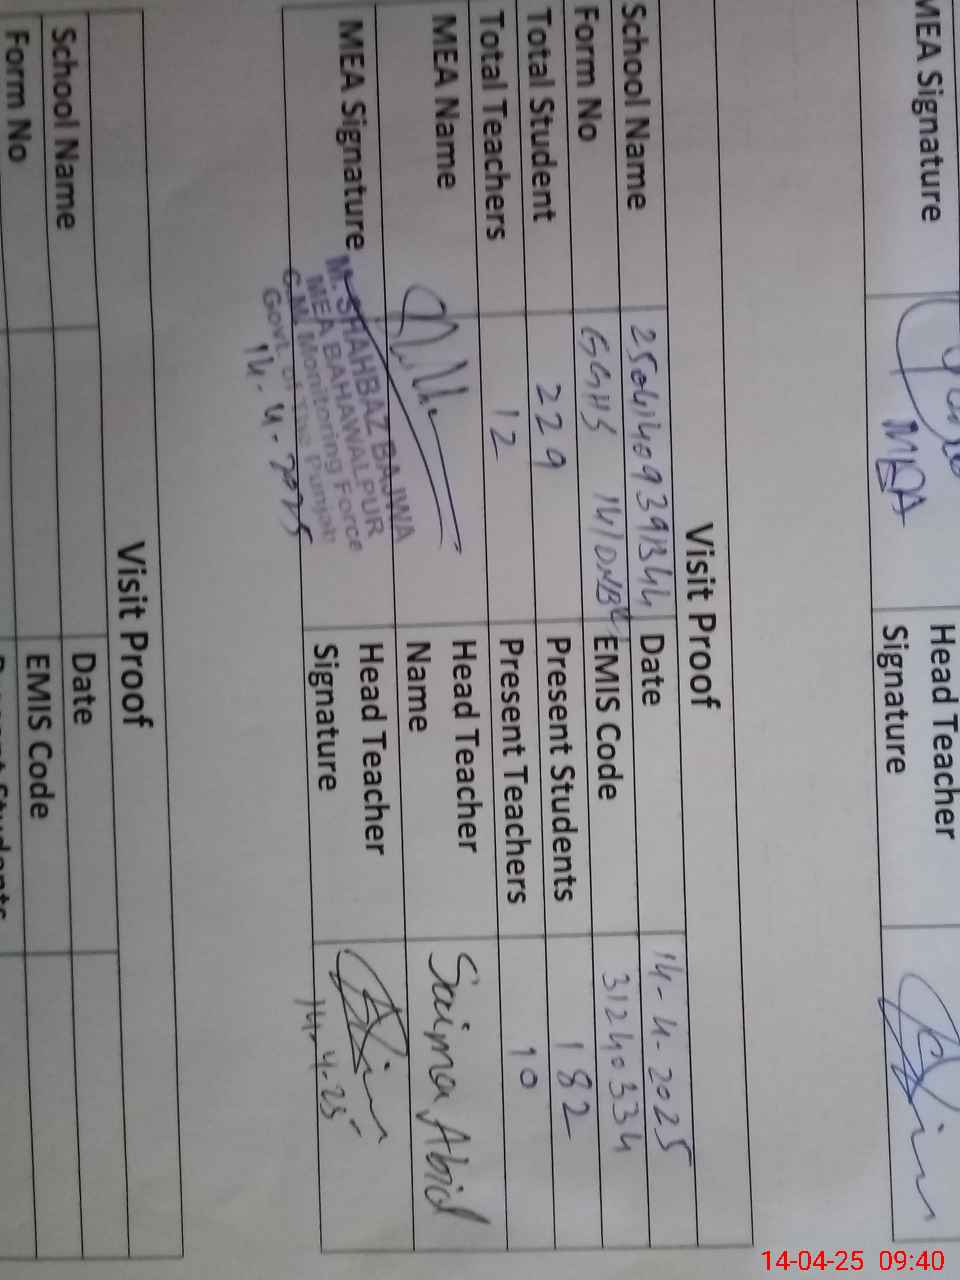 MEA Signature
MEA
Head Teacher
Signature
Visit Proof
School Name 25041409391344 Date 14-4-2025
Form No GGHS 14/DNB EMIS Code 31240334
Total Student 229 Present Students 182
Total Teachers 12 Present Teachers 10
MEA Name
Head Teacher
Name
Saima Abid
MEA Signature
M. SHAHBAZ BAJWA
MEA BAHAWALPUR
C.M. Monitoring Force
Govt. of The Punjab
14-4-2025
Head Teacher
Signature
14-4-25
Visit Proof
School Name Date
Form No EMIS Code
Present Students
14-04-25 09:40